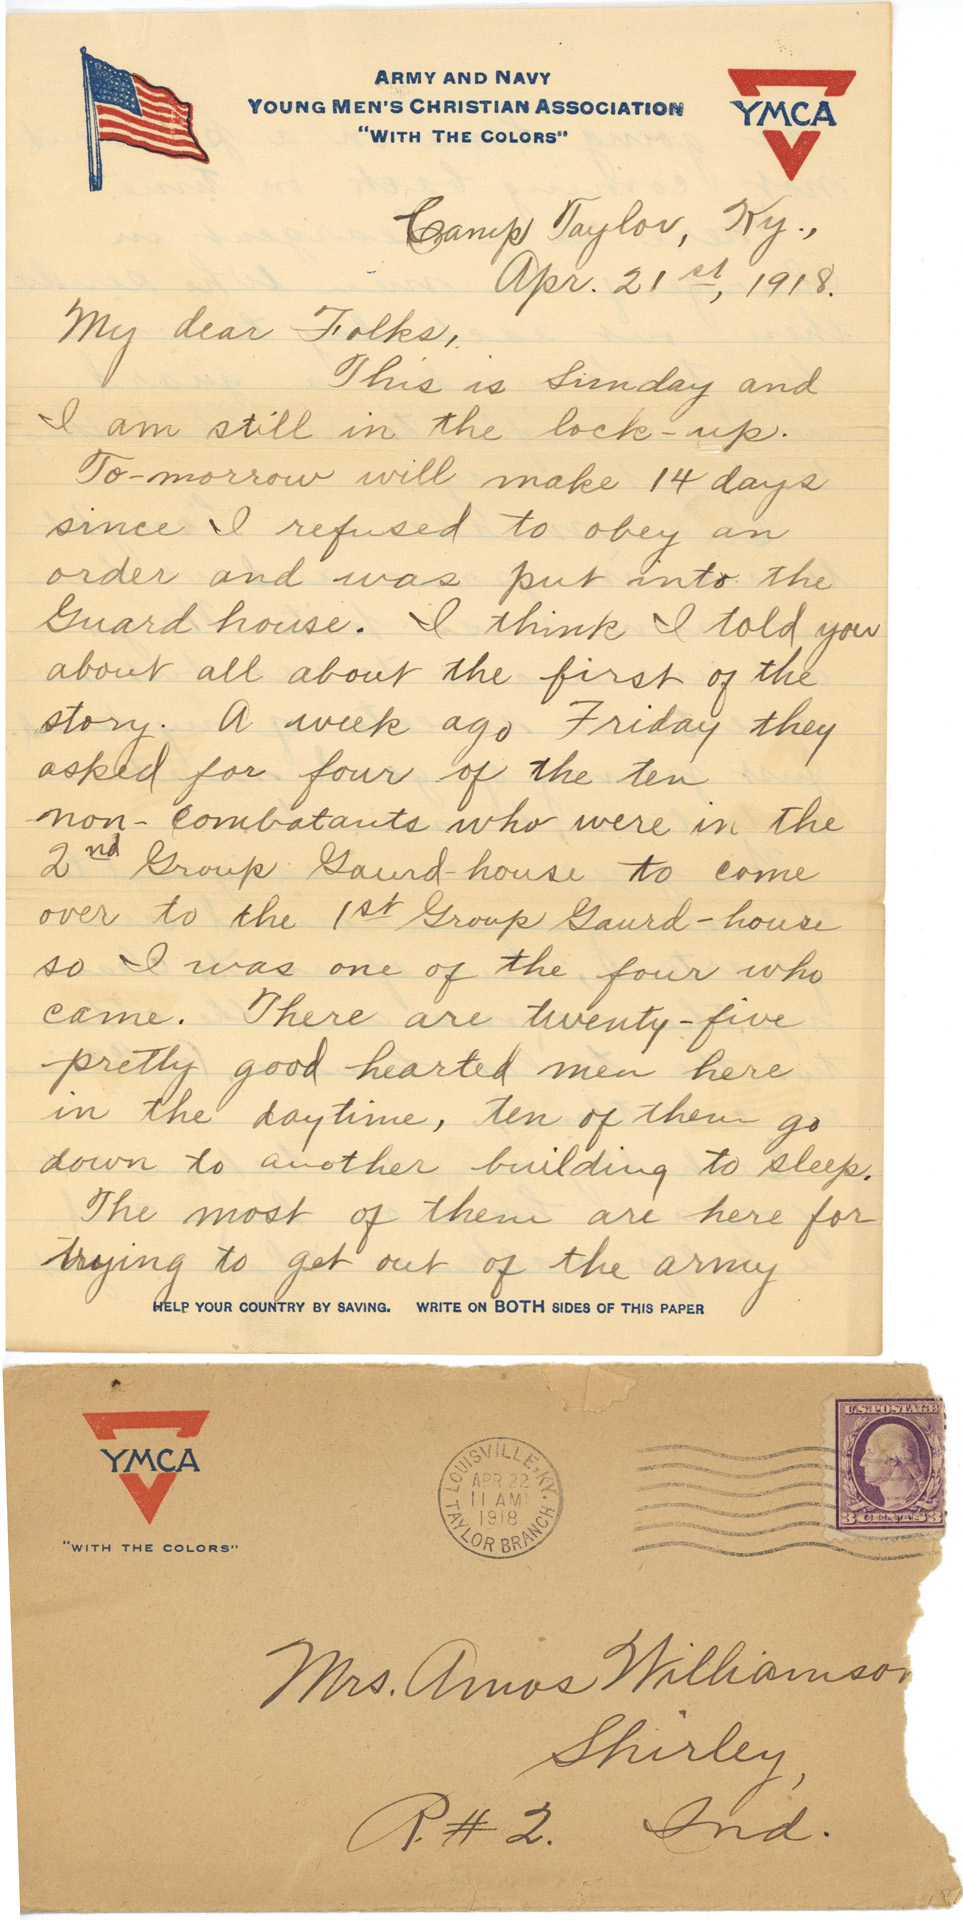 ARMY AND NAVY
YOUNG MEN'S CHRISTIAN ASSOCIATION
"WITH THE COLORS"
YMCA
Camp Taylor, Ky.,
Apr. 21st, 1918.
My dear Folks,
This is Sunday and
I am still in the lock-up.
To-morrow will make 14 days
since I refused to obey an
order and was put into the
Guard house. I think I told you
about all about the first of the
story. A week ago Friday they
asked for four of the ten
non-combatants who were in the
2nd Group Gaurd-house to come
over to the 1st Group Gaurd-house
so I was one of the four who
came. There are twenty-five
pretty good hearted men here
in the daytime, ten of them go
down to another building to sleep.
The most of them are here for
trying to get out of the army
HELP YOUR COUNTRY BY SAVING. WRITE ON BOTH SIDES OF THIS PAPER
YMCA
"WITH THE COLORS"
LOUISVILLE, KY.
APR 22
11 AM
1918
TAYLOR BRANCH
U.S. POSTAGE
3 CENTS 3
Mrs. Amos Williamson
Shirley,
R. # 2. Ind.